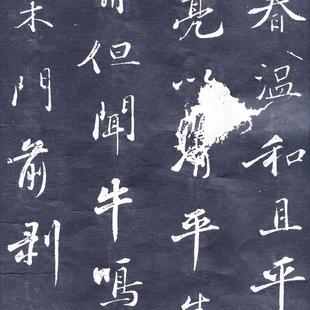 春温和且平
亮以平生
但聞牛鳴
門前剥